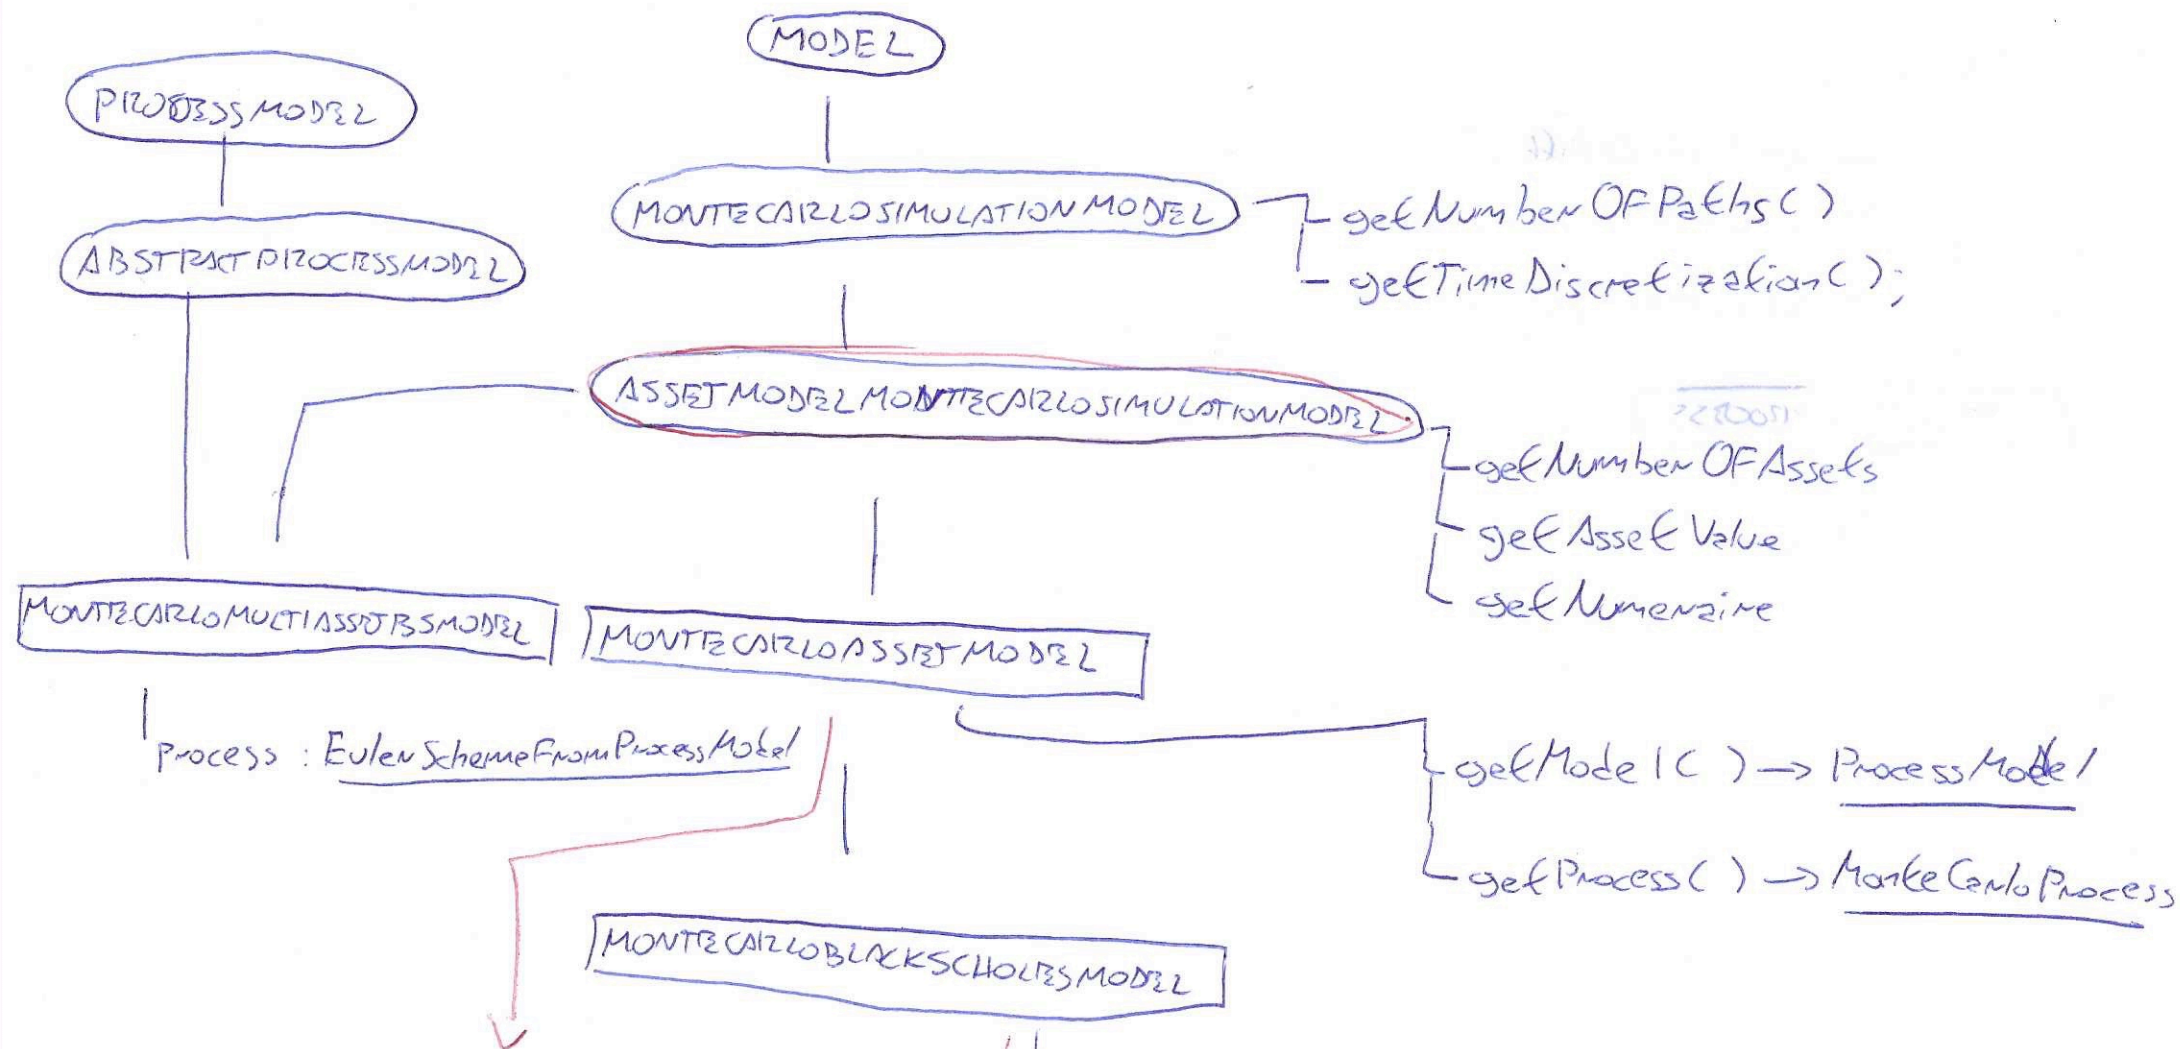 MODEL
PROCESSMODEL
MONTECARLOSIMULATIONMODEL
getNumberOFPaths()
ABSTRACTPROCESSMODEL
getTimeDiscretization();
ASSETMODELMONTECARLOSIMULATIONMODEL
getNumberOFAssets
getAssetValue
getNumeraire
MONTECARLOMULTIASSETBSMODEL
MONTECARLOASSETMODEL
process : EulerSchemeFromProcessModel
getModel() → ProcessModel
getProcess() → MonteCarloProcess
MONTECARLOBLACKSCHOLESMODEL